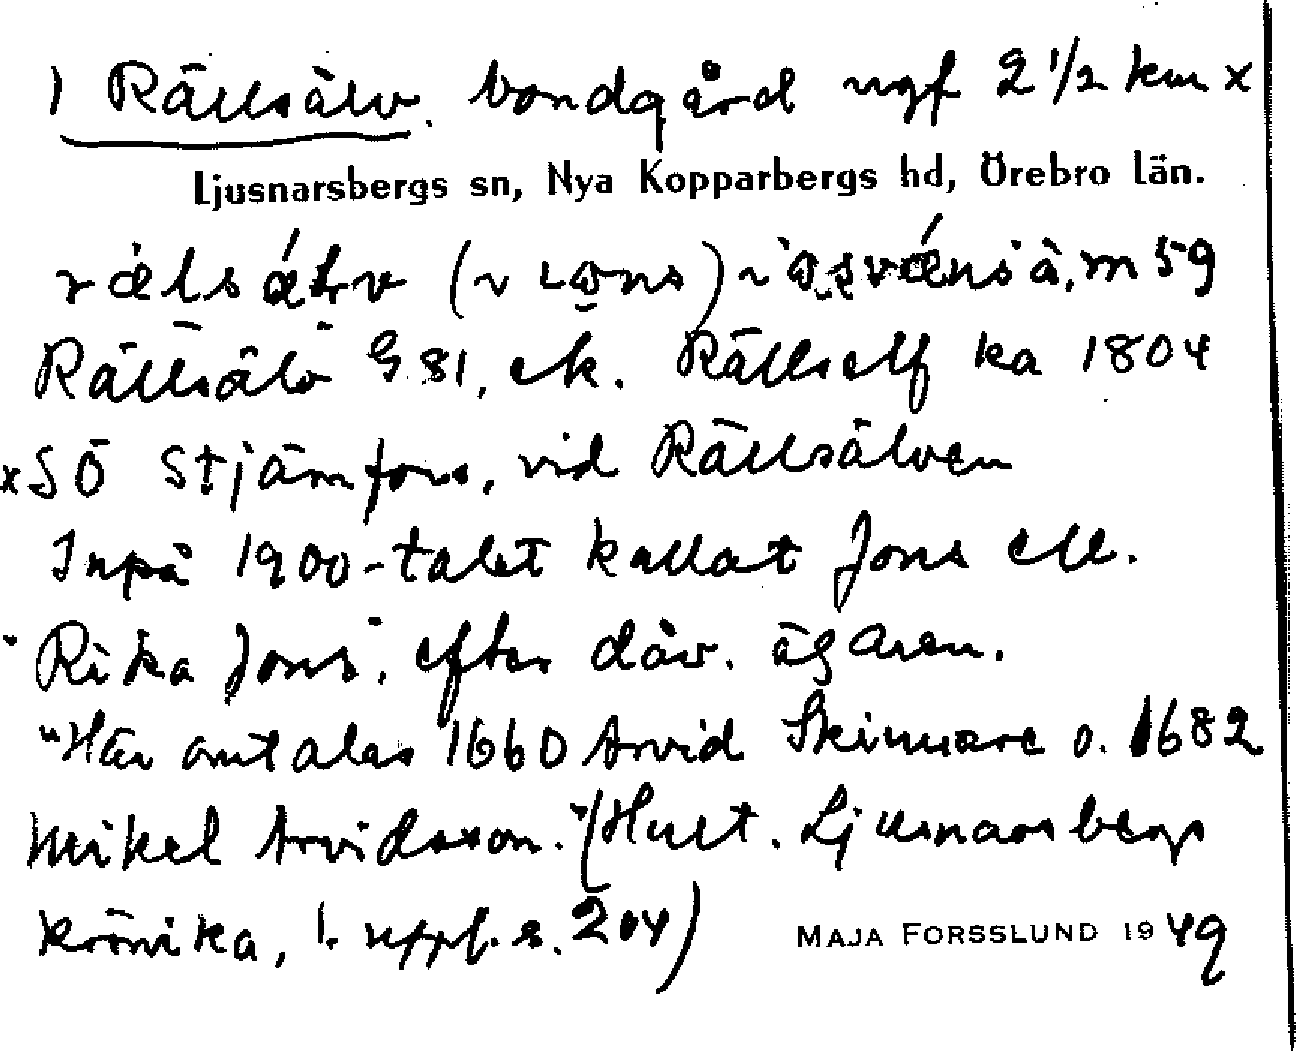 1) Rällsälv. bondgård ngf 2 1/2 km x
Ljusnarsbergs sn, Nya Kopparbergs hd, Örebro län.
Rällsälv G 81, ek. Rällself ka 1804
x SÖ Stjärnfors, vid Rällsälven
Inpå 1900-talet kallat Jons ell.
"Rika Jons", efter dåv. ägaren.
"Här omtalas 1660 Arvid Skinnare o. 1682
Mikel Arvidsson." (Hult. Ljusnarsbergs
krönika, 1. uppl. s. 204)
MAJA FORSSLUND 1949